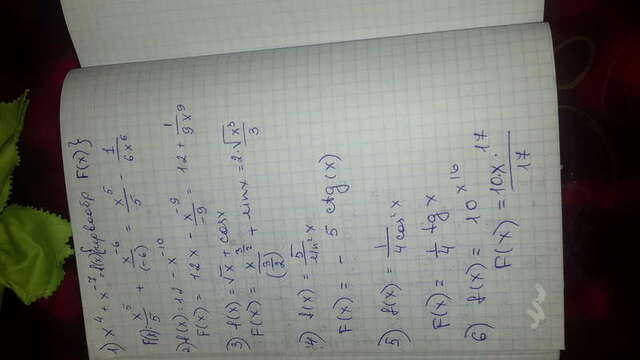 1) x⁴ + x⁻⁷ = f(x) {первообр F(x)}
F(x) = x⁵/5 + x⁻⁶/(-6) = x⁵/5 - 1/6x⁶
2) f(x) = 12 - x⁻¹⁰
F(x) = 12x - x⁻⁹/-9 = 12 + 1/9x⁹
3) f(x) = √x + cosx
F(x) = x^(3/2)/(3/2) + sinx = 2·√x³/3
4) f(x) = 5/sin²x
F(x) = - 5 ctg(x)
5) f(x) = 1/4cos²x
F(x) = 1/4 tg x
6) f(x) = 10x¹⁶
F(x) = 10·x·¹⁷/17